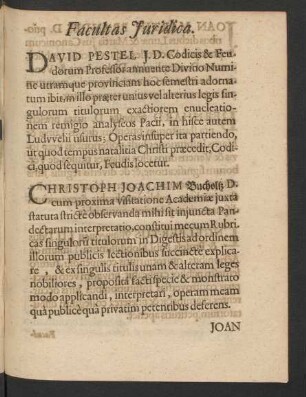 Facultas Juridica.
DAVID PESTEL J.D. Codicis & Feu-
dorum Professor annuente Divino Numi-
ne utramque provinciam hoc semestri adorna-
tum ibit, in illo præter unius vel alterius legis sin-
gulorum titulorum exactiorem enucleatio-
nem remigio analyseos Pacii, in hisce autem
Ludvvelii usurus; Operas insuper ita partiendo,
ut quod tempus natalitia Christi præcedit, Codi-
ci, quod sequitur, Feudis locetur.
CHRISTOPH JOACHIM Bucholtz D.
cum proxima visitatione Academiæ juxta
statuta stricte observanda mihi sit injuncta Pan-
dectarum interpretatio, constitui mecum Rubri-
cas singulorū titulorum in Digestis ad ordinem
illorum publicis lectionibus succincte explica-
re, & ex singulis titulis unam & alteram leges
nobiliores, proposita facti specie & monstrato
modo applicandi, interpretari, operam meam
quà publicè quà privatim petentibus deferens.
JOAN